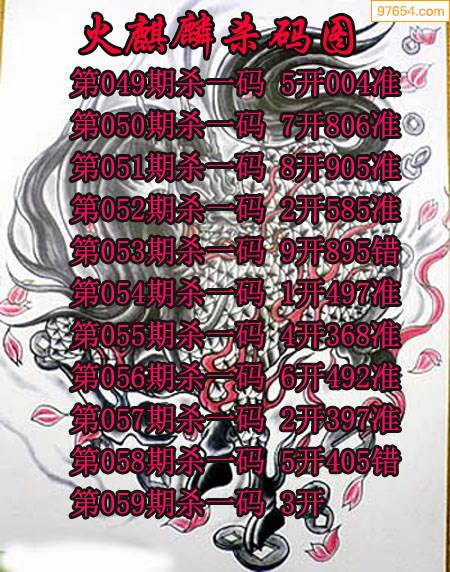 97654.com
火麒麟杀码图
第049期杀一码 5开004准
第050期杀一码 7开806准
第051期杀一码 8开905准
第052期杀一码 2开585准
第053期杀一码 9开895错
第054期杀一码 1开497准
第055期杀一码 4开368准
第056期杀一码 6开492准
第057期杀一码 2开397准
第058期杀一码 5开405错
第059期杀一码 3开